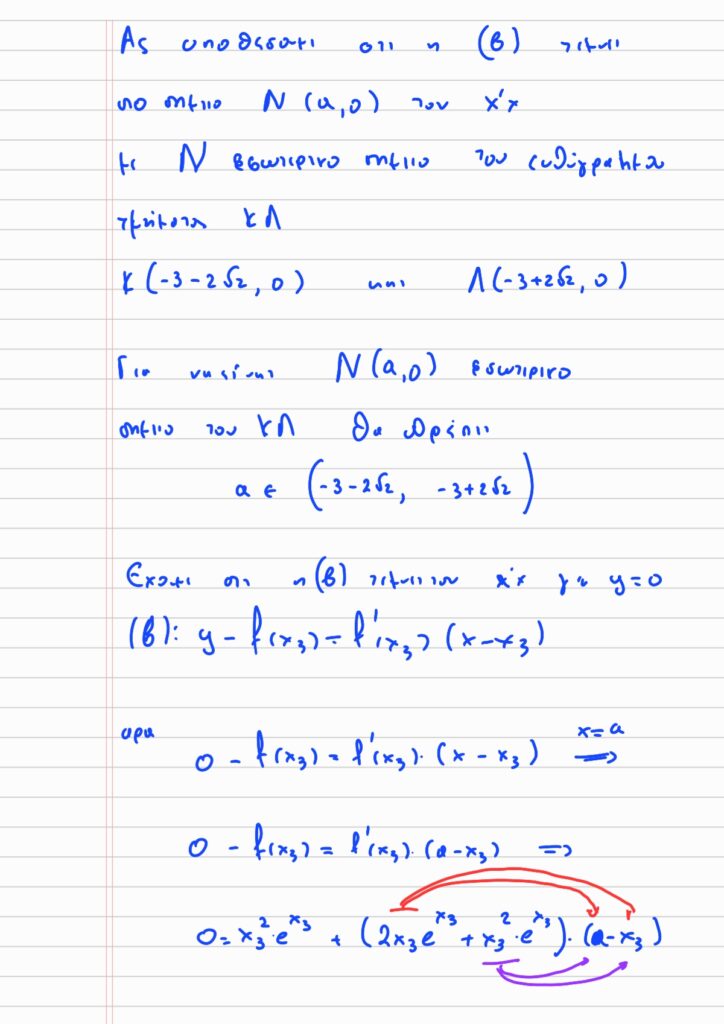 Ας υποθεσουμε οτι η (β) τεμνει
το σημειο Ν (α,0) του x'x
με Ν εσωτερικο σημειο του ευθύγραμμου
τμήματος ΚΛ
Κ(-3-2√2, 0) και Λ(-3+2√2, 0)
Για να είναι Ν(α,0) εσωτερικο
σημειο του ΚΛ θα πρέπει
α ∈ (-3-2√2, -3+2√2)
Εχουμε οτι η (β) τεμνει τον x'x για y=0
(β): y - f(x₃) = f'(x₃) (x-x₃)
αρα 0 - f(x₃) = f'(x₃)· (x - x₃) x=α ⟹
0 - f(x₃) = f'(x₃)· (α-x₃) =>
0 = x₃²·e^x₃ + (2x₃e^x₃ + x₃²·e^x₃)· (α-x₃)